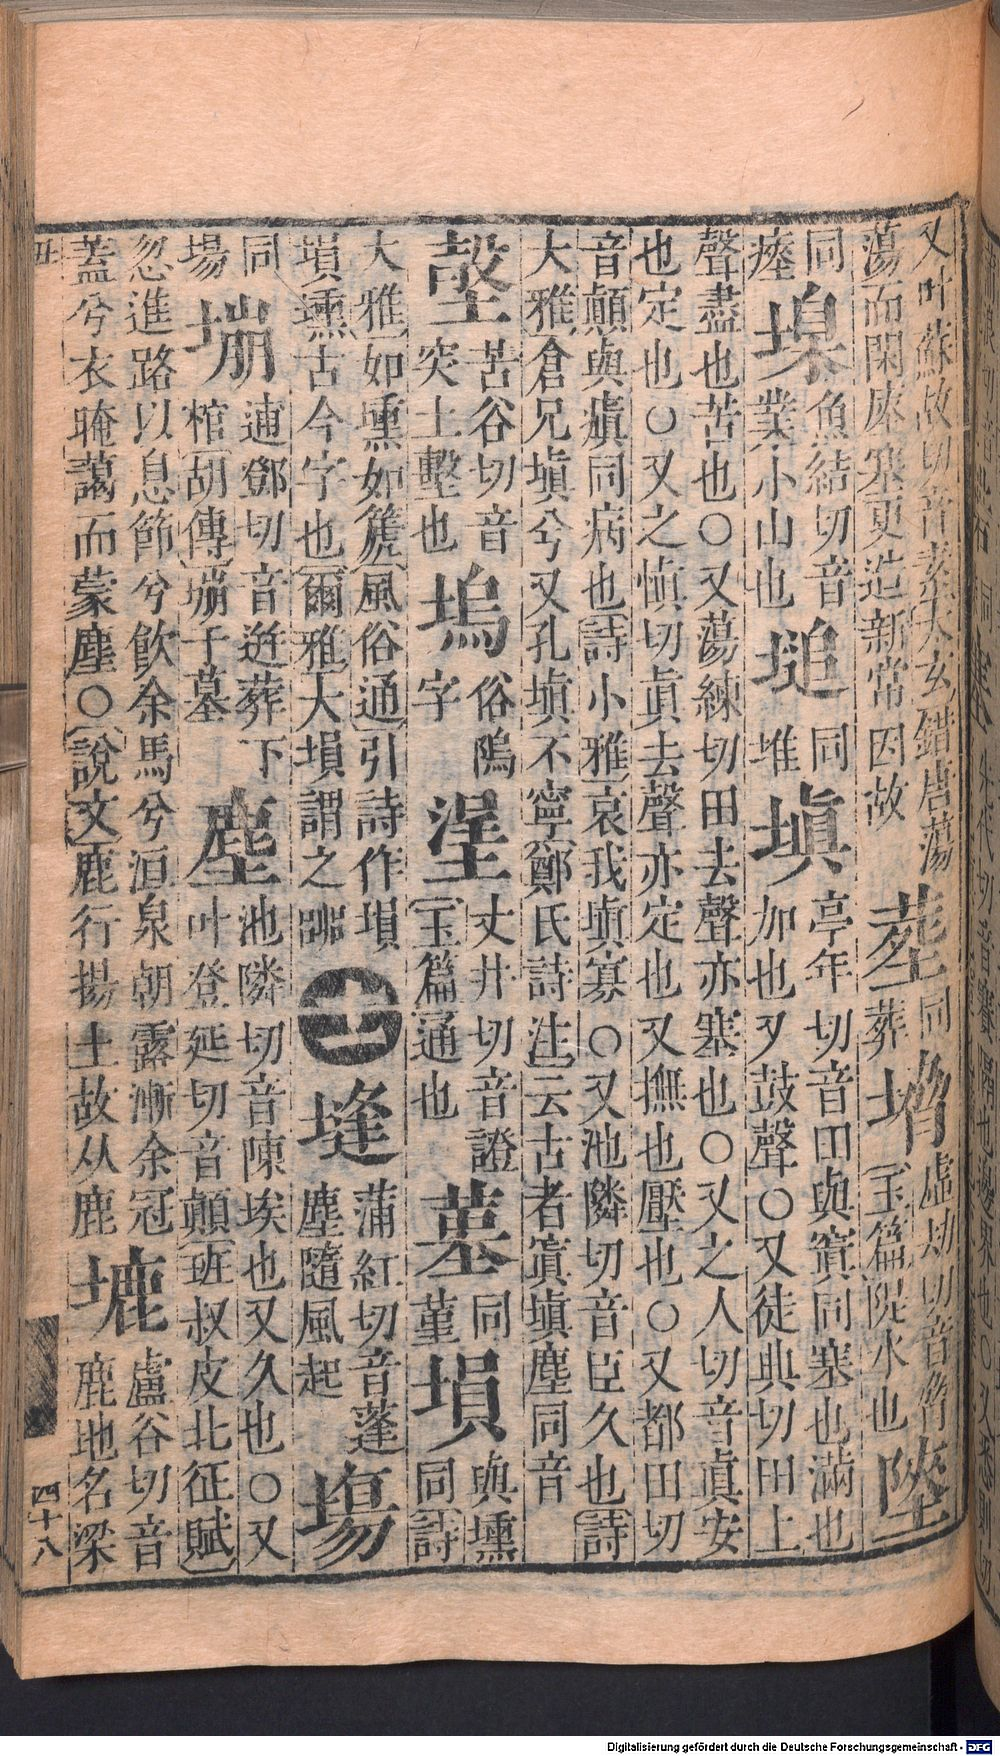 又叶蘇故切音素太玄錯唐蕩
蕩而閑座塞更造新常因故
塟同葬
塉虛刼切音脅〔玉篇〕隄水也
塦同
瘞
㙞魚結切音業小山也
塠同堆
塡亭年切音田與窴同塞也滿也加也又鼓聲○又徒典切田上
聲盡也苦也○又蕩練切田去聲亦塞也○又之人切音眞安
也定也○又之愼切眞去聲亦定也又撫也壓也○又都田切
音顛與瘨同病也〔詩小雅〕哀我塡寡○又池隣切音臣久也〔詩
大雅〕倉兄塡兮又孔塡不寧〔鄭氏詩注〕云古者窴塡塵同音
苦谷切音突土墼也
塢俗隖字
丈井切音證〔玉篇〕通也
同堇
塤與壎同〔詩
大雅〕如壎如箎〔風俗通〕引詩作塤
塤壎古今字也〔爾雅〕大塤謂之
十一
塳蒲紅切音蓬塵隨風起
塲
同場
塴逋鄧切音逬葬下棺〔胡傳〕塴子墓
塵池隣切音陳埃也又久也○又叶登延切音顛〔班叔皮北征賦〕
忽進路以息節兮飮余馬兮洹泉朝露漸余冠
蓋兮衣晻藹而蒙塵○〔說文〕鹿行揚土故从鹿
塶盧谷切音鹿地名梁
丑
四十八
Digitalisierung gefördert durch die Deutsche Forschungsgemeinschaft - DFG